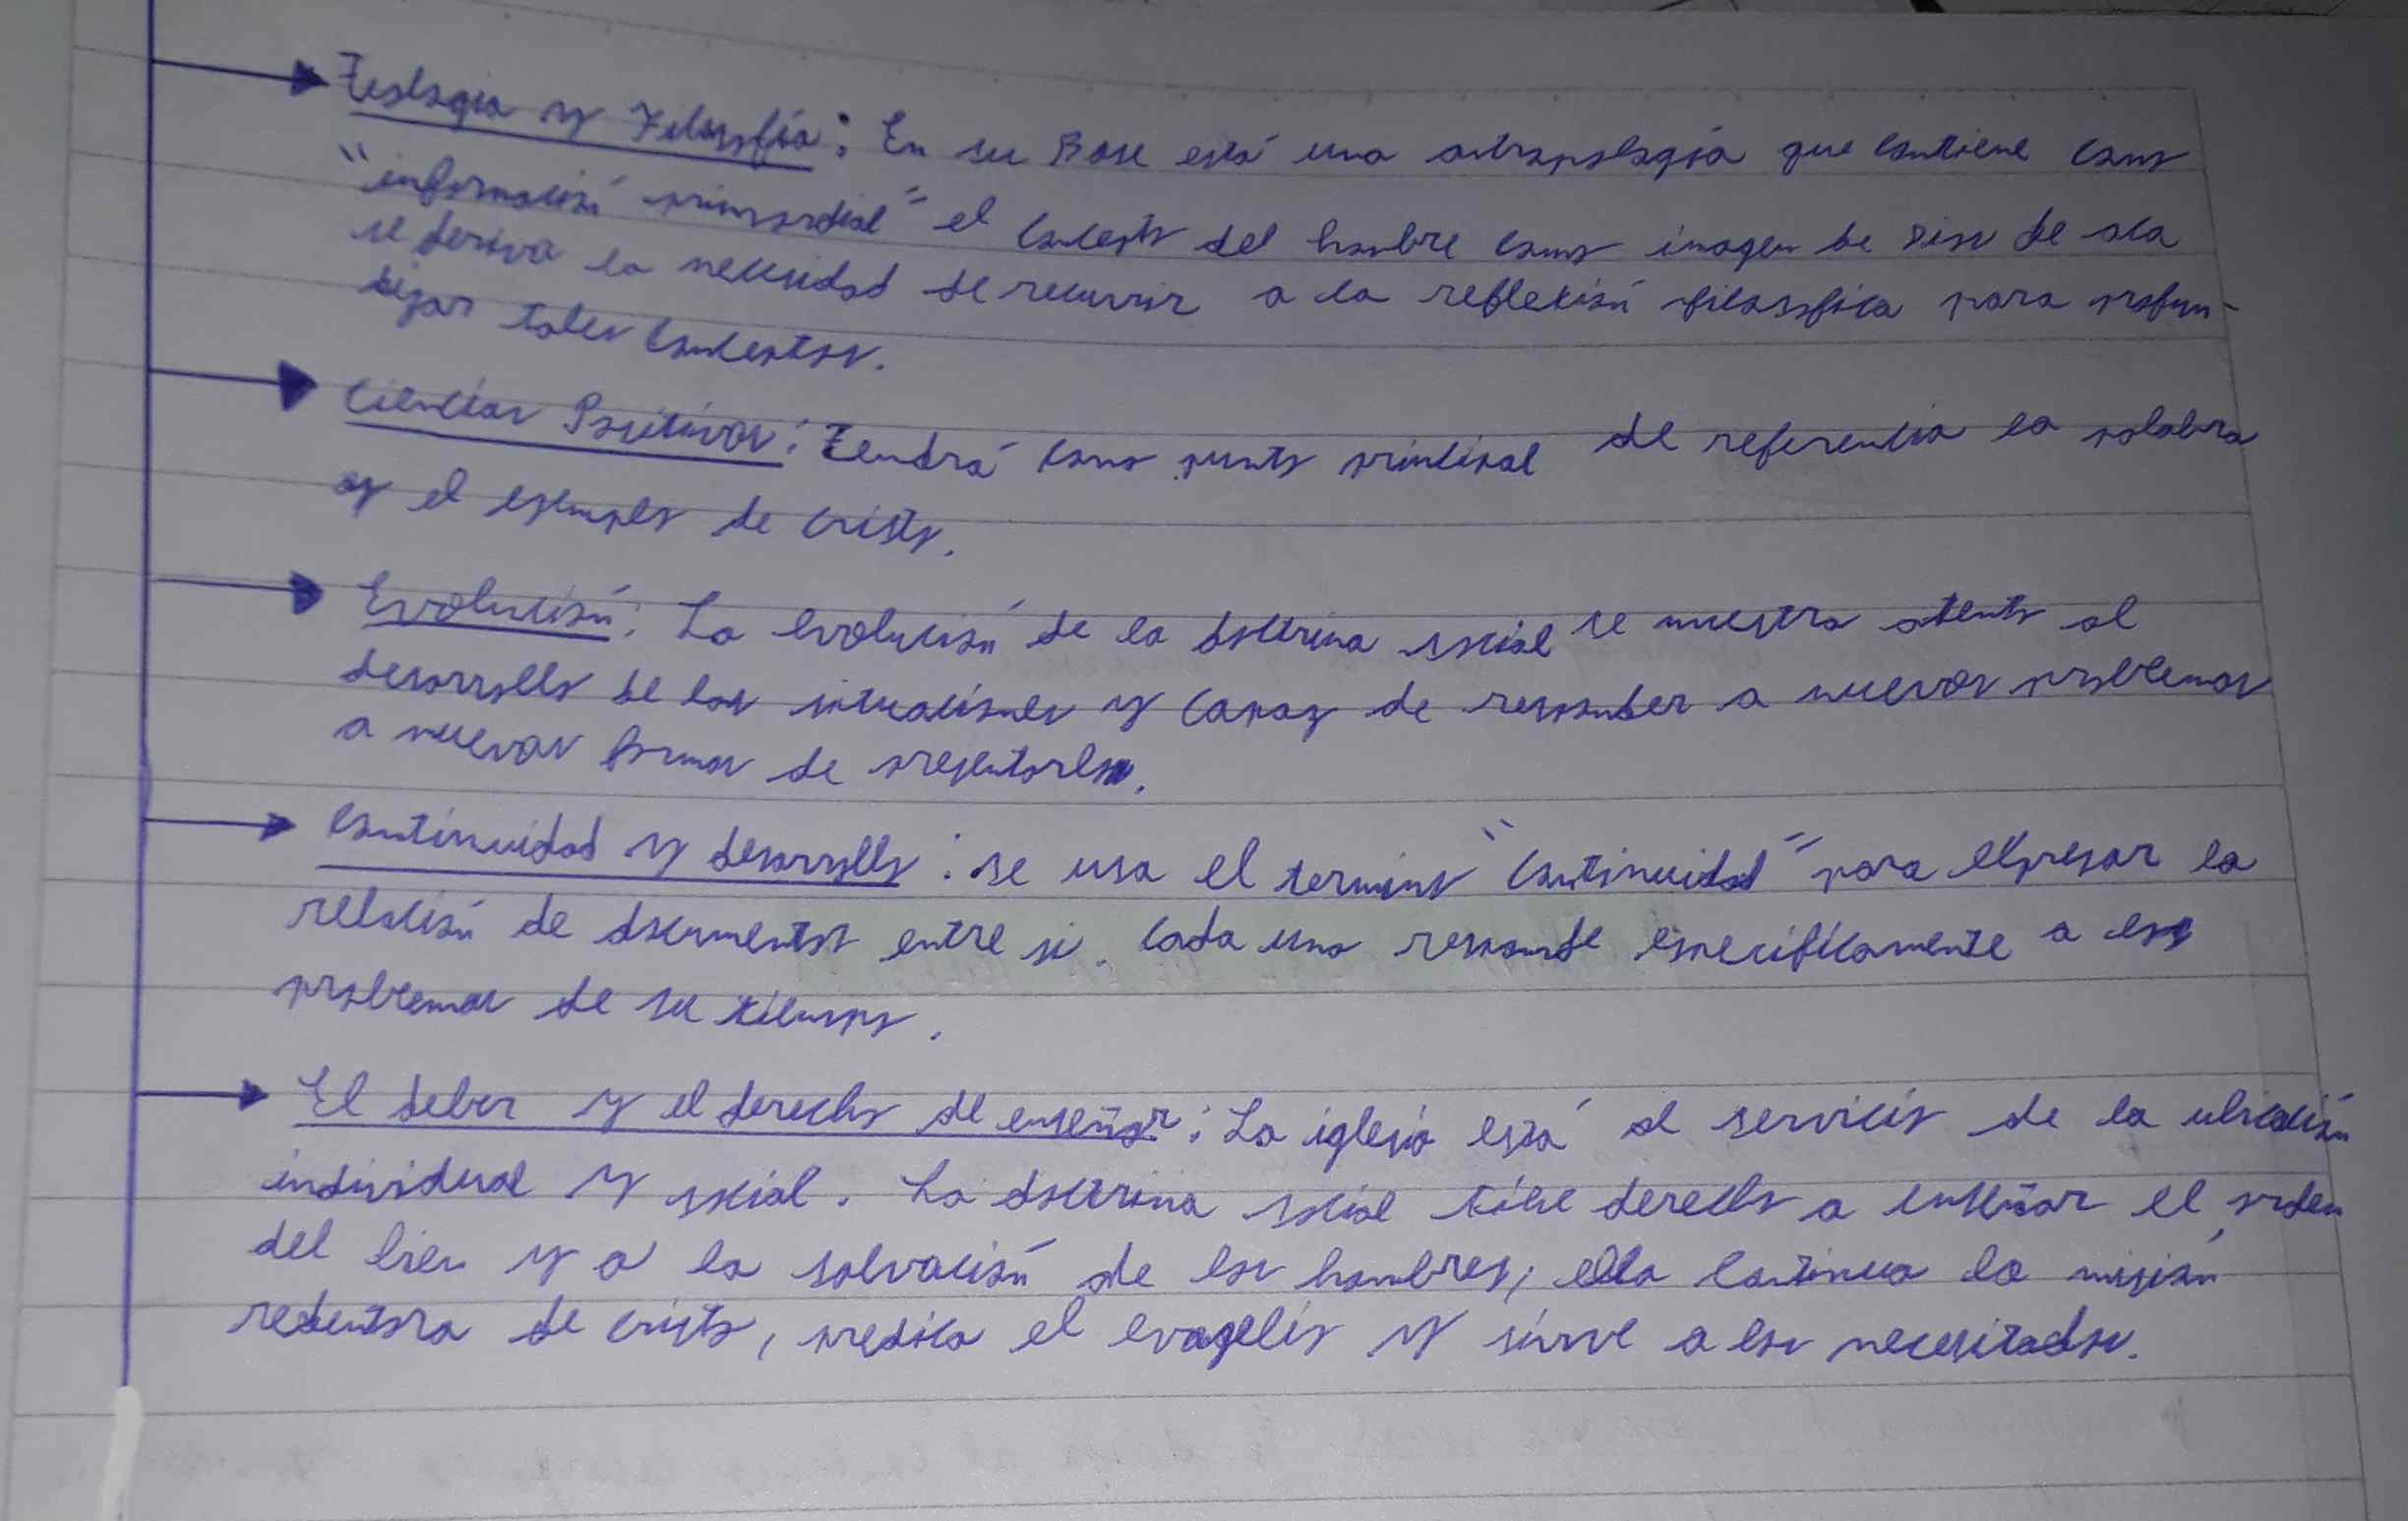 Teologia y Filosofía: En su Base está una antropología que contiene como
"información primordial" el concepto del hombre como imagen de Dios de acá
se deriva la necesidad de recurrir a la reflexión filosófica para profun-
dizar tales conceptos.
Ciencias Positivas: Tendrá como punto principal de referencia la palabra
y el ejemplo de cristo.
Evolución: La evolución de la doctrina social se muestra atento al
desarrollo de las situaciones y capaz de responder a nuevos problemas
a nuevas formas de presentarlos.
Continuidad y desarrollo: se usa el termino "continuidad" para expresar la
relación de documentos entre si. Cada uno responde especificamente a los
problemas de su tiempo.
El deber y el derecho de enseñar: La iglesia está al servicio de la
individual y social. La doctrina social tiene derecho a enseñar el orden
del bien y a la salvación de los hombres, ella continua la misión
redentora de cristo, predica el evagelio y sirve a los necesitados.